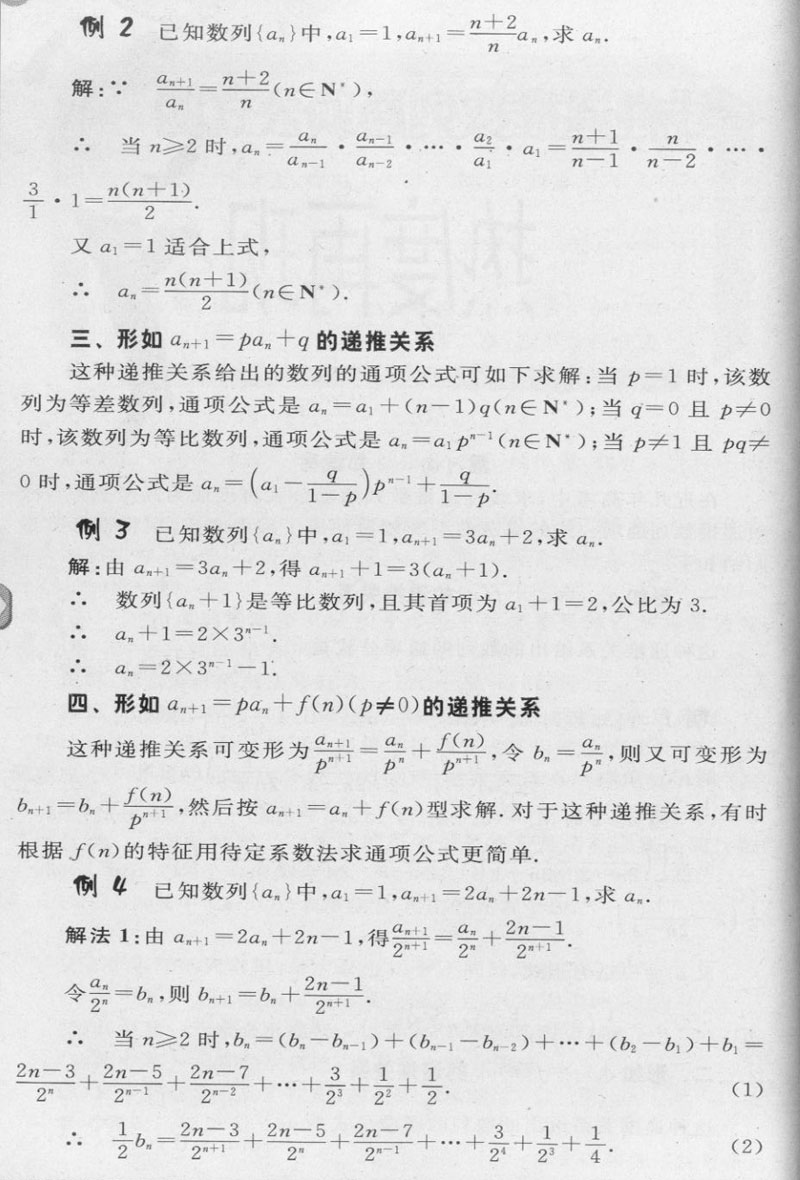 例 2 已知数列{aₙ}中,a₁=1,aₙ₊₁=\frac{n+2}{n}aₙ,求 aₙ.
解:∵ \frac{aₙ₊₁}{aₙ}=\frac{n+2}{n}(n∈N*),
∴ 当 n≥2 时,aₙ=\frac{aₙ}{aₙ₋₁}·\frac{aₙ₋₁}{aₙ₋₂}·…·\frac{a₂}{a₁}·a₁=\frac{n+1}{n-1}·\frac{n}{n-2}·…·
\frac{3}{1}·1=\frac{n(n+1)}{2}.
又 a₁=1 适合上式,
∴ aₙ=\frac{n(n+1)}{2}(n∈N*).
三、形如 aₙ₊₁=paₙ+q 的递推关系
这种递推关系给出的数列的通项公式可如下求解:当 p=1 时,该数
列为等差数列,通项公式是 aₙ=a₁+(n-1)q(n∈N*);当 q=0 且 p≠0
时,该数列为等比数列,通项公式是 aₙ=a₁pⁿ⁻¹(n∈N*);当 p≠1 且 pq≠
0 时,通项公式是 aₙ=(a₁-\frac{q}{1-p})pⁿ⁻¹+\frac{q}{1-p}.
例 3 已知数列{aₙ}中,a₁=1,aₙ₊₁=3aₙ+2,求 aₙ.
解:由 aₙ₊₁=3aₙ+2,得 aₙ₊₁+1=3(aₙ+1).
∴ 数列{aₙ+1}是等比数列,且其首项为 a₁+1=2,公比为 3.
∴ aₙ+1=2×3ⁿ⁻¹.
∴ aₙ=2×3ⁿ⁻¹-1.
四、形如 aₙ₊₁=paₙ+f(n)(p≠0)的递推关系
这种递推关系可变形为\frac{aₙ₊₁}{pⁿ⁺¹}=\frac{aₙ}{pⁿ}+\frac{f(n)}{pⁿ⁺¹},令 bₙ=\frac{aₙ}{pⁿ},则又可变形为
bₙ₊₁=bₙ+\frac{f(n)}{pⁿ⁺¹},然后按 aₙ₊₁=aₙ+f(n)型求解.对于这种递推关系,有时
根据 f(n)的特征用待定系数法求通项公式更简单.
例 4 已知数列{aₙ}中,a₁=1,aₙ₊₁=2aₙ+2n-1,求 aₙ.
解法 1:由 aₙ₊₁=2aₙ+2n-1,得\frac{aₙ₊₁}{2ⁿ⁺¹}=\frac{aₙ}{2ⁿ}+\frac{2n-1}{2ⁿ⁺¹}.
令\frac{aₙ}{2ⁿ}=bₙ,则 bₙ₊₁=bₙ+\frac{2n-1}{2ⁿ⁺¹}.
∴ 当 n≥2 时,bₙ=(bₙ-bₙ₋₁)+(bₙ₋₁-bₙ₋₂)+…+(b₂-b₁)+b₁=
\frac{2n-3}{2ⁿ}+\frac{2n-5}{2ⁿ⁻¹}+\frac{2n-7}{2ⁿ⁻²}+…+\frac{3}{2³}+\frac{1}{2²}+\frac{1}{2}. (1)
∴ \frac{1}{2}bₙ=\frac{2n-3}{2ⁿ⁺¹}+\frac{2n-5}{2ⁿ}+\frac{2n-7}{2ⁿ⁻¹}+…+\frac{3}{2⁴}+\frac{1}{2³}+\frac{1}{4}. (2)